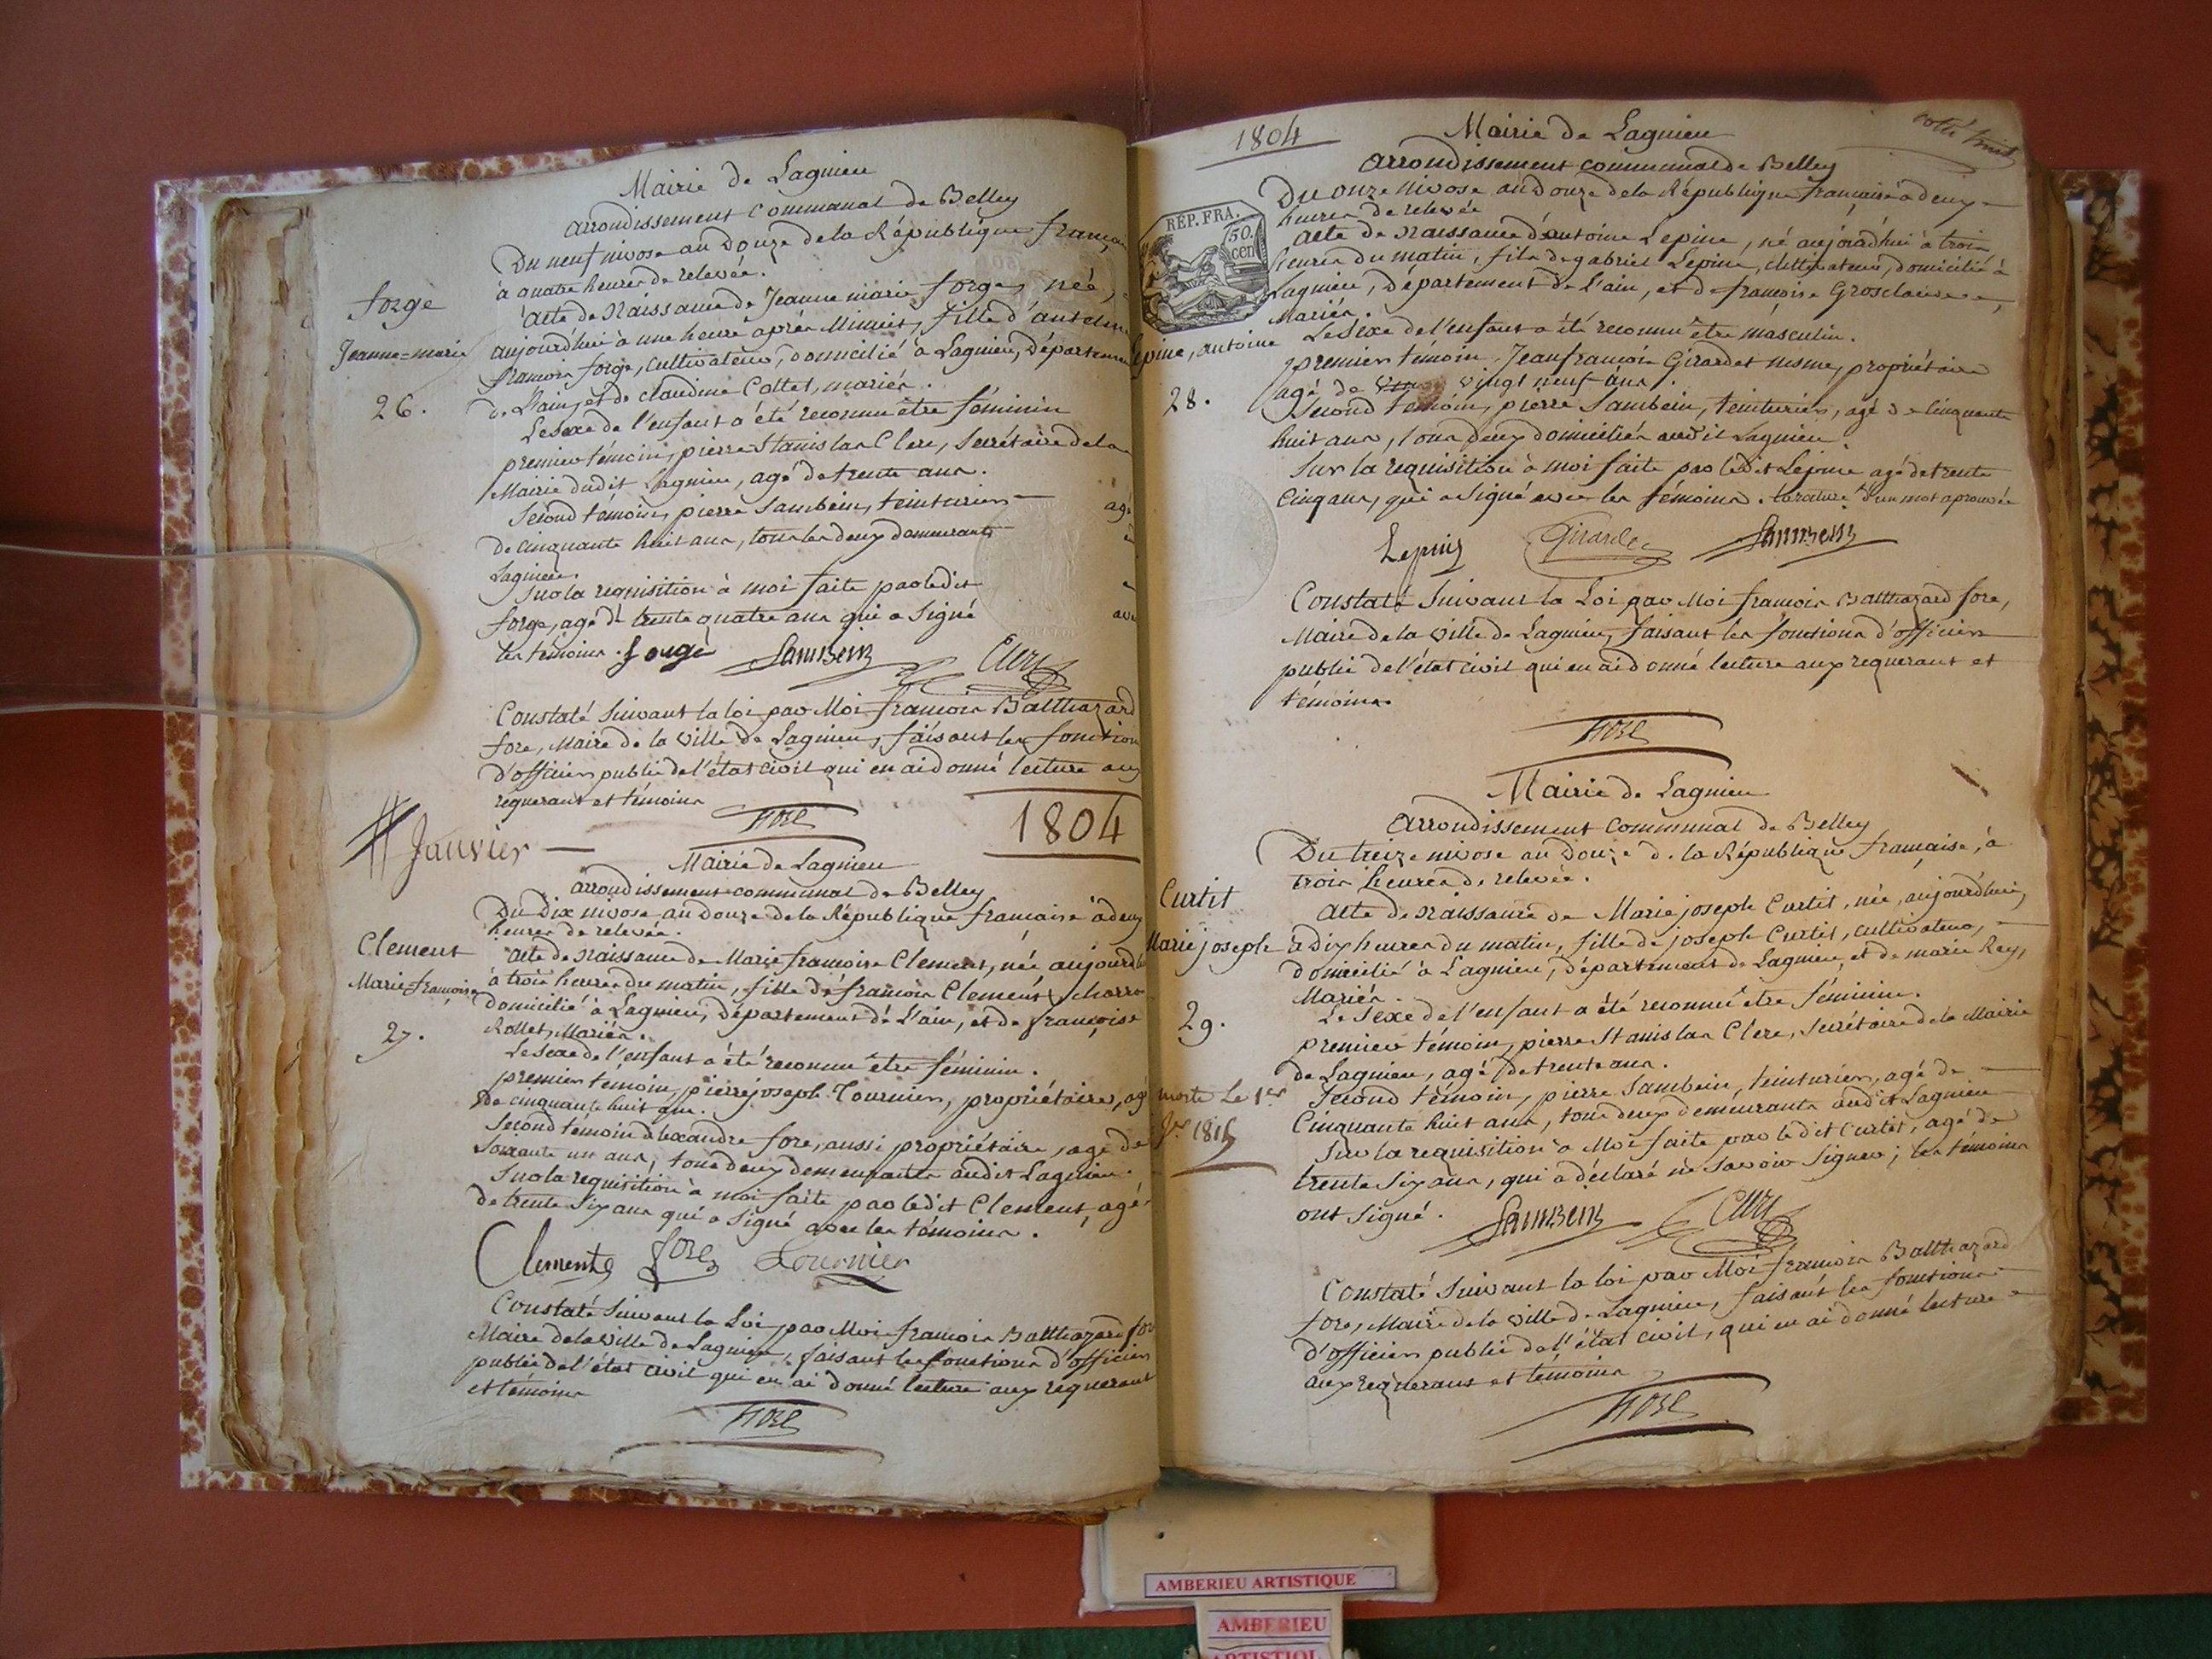 Mairie de Lagnieu
arrondissement Communal de Belley
Du neuf nivose an Douze de la République françai
à quatre heures de relevée.
forge
Jeanne=marie
26.
acte de Naissance de Jeanne marie forge, née,
aujourd'hui à une heure après Minuit, fille d'antelme
françois forge, Cultivateur, domicilié à Lagnieu, Départemen
de L'ain, et de claudine Collet, mariés.
Le Sexe de l'enfant a été reconnu être féminin
premier témoin, pierre Stanislas Clerc, Secrétaire de la
Mairie dudit Lagnieu, agé de trente ans.
Second témoin, pierre Sambein, teinturier — agé
de cinquante huit ans, tous les deux demeurants
Lagnieu.
Sur la requisition à moi faite par ledit
forge, agé de trente quatre ans qui a Signé ave
les témoins. forge Sambein Clerc
Constaté Suivant la loi par Moi françois Balthazard
fore, Maire de la Ville de Lagnieu, faisant les fonction
d'officier public de l'état civil qui en ai donné lecture aux
requerant et témoins
fore
1804
Janvier —
Mairie de Lagnieu
arrondissement communal de Belley
Du Dix nivose an Douze de la République française à deux
heures de relevée.
Clement
Marie-françoise
27.
acte de Naissance de Marie françoise Clement, née aujourd'hui
à trois heures du matin, fille de françois Clement, charro
domicilié à Lagnieu, département de L'ain, et de françoise
Rollet, Mariés.
Le Sexe de l'enfant a été reconnu être féminin.
premier témoin, pierre joseph Tournier, propriétaire, agé
de cinquante huit ans.
Second témoin alexandre fore, aussi propriétaire, agé de
Soixante un ans, tous deux demeurants audit Lagnieu.
Sur la requisition à moi faite par ledit Clement, agé
de trente Six ans qui a Signé avec les témoins.
Clement fore Tournier
Constaté Suivant la Loi par Moi françois Balthazard for
Maire de la ville de Lagnieu, faisant les fonctions d'officier
public de l'état civil qui en ai donné lecture aux requerant
et témoins
fore
1804
Mairie de Lagnieu
arrondissement communal de Belley
REP. FRA.
50.
cen
Du onze nivose an Douze de la République française à deux
heures de relevée
acte de Naissance d'antoine Lepine, né aujourd'hui à trois
heures du matin, fils de gabriel Lepine, cultivateur, domicilié à
Lagnieu, Département de L'ain, et de françoise Grosclaude,
Mariés.
epine, antoine
28.
Le Sexe de l'enfant a été reconnu être masculin.
premier témoin, Jean françois Girardet nisme, propriétaire
agé de vingt neuf ans.
Second témoin, pierre Sambein, teinturier, agé de Cinquante
huit ans, tous deux domiciliés audit Lagnieu.
Sur la requisition à moi faite par ledit Lepine agé de trente
Cinq ans, qui a Signé avec les témoins. la rature d'un mot aprouvée
Lepine Girardet Sambein
Constaté Suivant la Loi par Moi françois Balthazard fore,
Maire de la ville de Lagnieu, faisant les fonctions d'officier
public de l'état civil qui en ai donné lecture aux requerant et
témoins.
fore
Mairie de Lagnieu
arrondissement communal de Belley
Du treize nivose an Douze de la République française, à
trois heures de relevée.
Curtit
Marie joseph
29.
morte Le 1er
1815
acte de Naissance de Marie joseph Curtit, née, aujourd'hui,
à dix heures du matin, fille de joseph Curtit, cultivateur,
domicilié à Lagnieu, département de Lagnieu, et de marie Rey,
Mariés.
Le Sexe de l'enfant a été reconnu être féminin.
premier témoin, pierre Stanislas Clerc, Secrétaire de la Mairie
de Lagnieu, agé de trente ans.
Second témoin, pierre Sambein, teinturier, agé de
Cinquante huit ans, tous deux demeurants audit Lagnieu
Sur la requisition à Moi faite par ledit Curtit, agé de
trente Six ans, qui a déclaré ne Savoir Signer; les témoins
ont Signé. Sambein Clerc
Constaté Suivant la loi par Moi françois Balthazard
fore, Maire de la ville de Lagnieu, faisant les fonctions
d'officier public de l'état civil, qui en ai donné lecture
aux requerant et témoins
fore
AMBERIEU ARTISTIQUE
AMBERIEU
ARTISTIQU